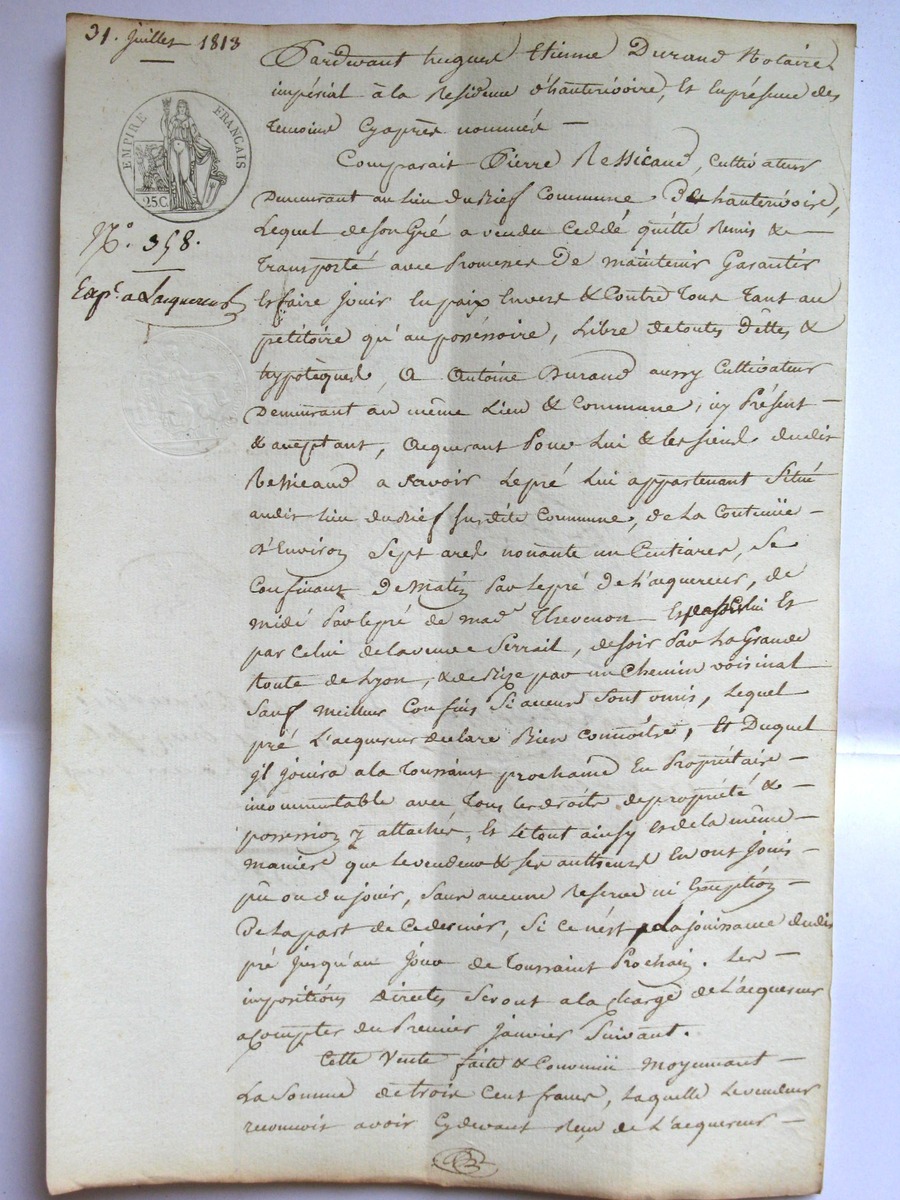 31. Juillet 1813
EMPIRE FRANÇAIS
25 C.
N.° 358.
Exp.n a l'acquereur
Pardevant hugues Etienne Durand Notaire
impérial à la Residence d'hauterivoire, Et En présence des
Temoins Cyaprès nommés —
Comparait Pierre Ressicaud, Cultivateur
Demeurant au Lieu du Rief Commune D'hauterivoire,
Lequel de son Gré a vendu Ceddé quitté Remis & —
Transporté avec Promesse De maintenir Garantir
Et faire Jouir En paix Envers & Contre Tous Tant au
petitoire qu'au possessoire, Libre de toutes dêttes &
hypotèques, A Antoine Durand aussy Cultivateur
Demeurant au même Lieu & Commune, icy Présent —
& acceptant, acquerant Pour Lui & les siens dudit
Ressicaud a Savoir Le pré Lui appartenant Situé
audit Lieu du Rief susdite Commune, de La Contenüe —
d'Environ Sept ares nonante un Centiares, Se
Confinant De Matin Par le pré de L'acquereur, de
midi Par le pré de mad.e Thevenon Et
par Celui de la veuve Serrail, de soir Par La Grande
Route de Lyon, & de Bize par un Chemin voisinal
Sauf meilleurs Confins Si aucuns Sont omis, Lequel
pré L'acquereur declare Bien Connoitre, Et Duquel
il jouira a la Toussaint prochaine En Propriétaire —
incommutable avec Tous les droits de propriété & —
possession y attachés, Et Le tout ainsy Et de la même —
maniere que le vendeur & ses autheurs En ont Joui —
pû ou du jouir, Sans aucune Reserve ni Exception —
De La part de Ce dernier, Si Ce n'est La jouissance dudit
pré jusqu'au Jour de Toussaint Prochain. Les —
impositions directes Seront a la Charge de L'acquereur
a Compter du Premier Janvier Suivant.
Cette Vente faite & Convenüe moyennant —
La Somme de trois Cent francs, Laquelle Le vendeur
reconnoit avoir Cy devant Reçu de L'acquereur —